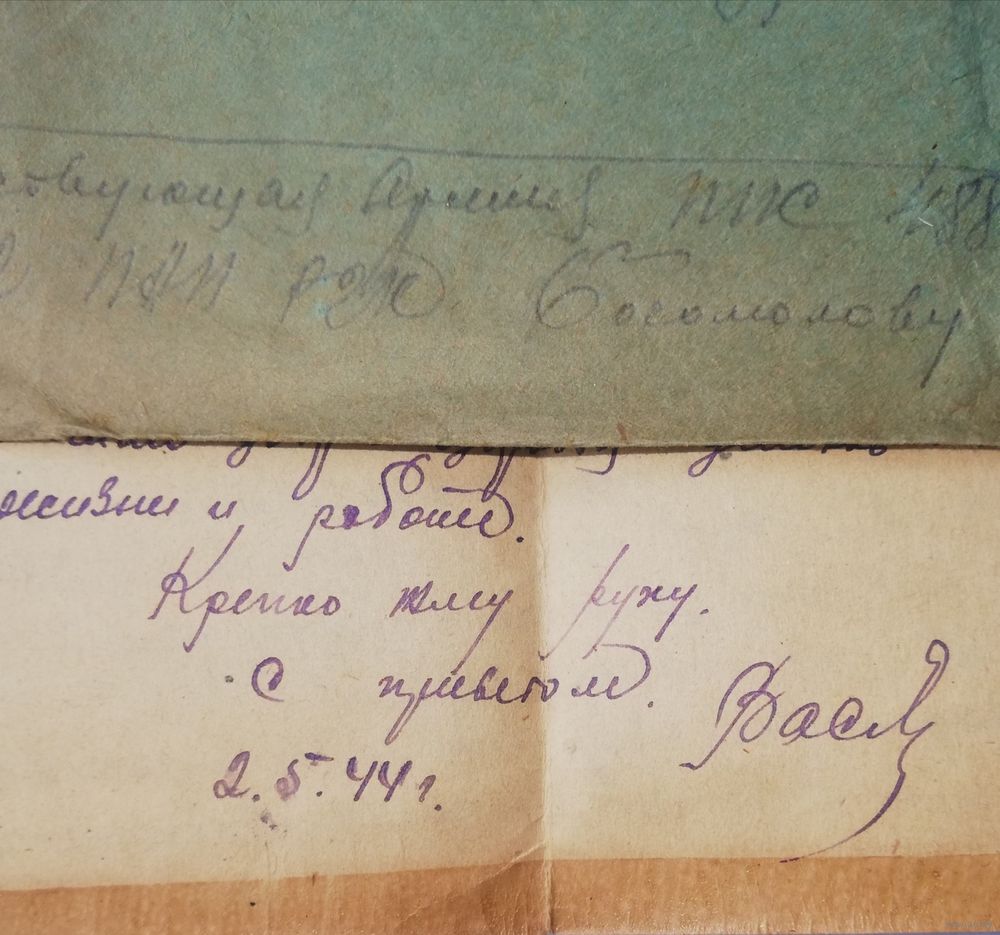 ствующая Армия ППС 488
ППП РЭЖ Богомолову
жизни и работе.
Крепко жму руку.
С приветом. Вася
2.5.44г.